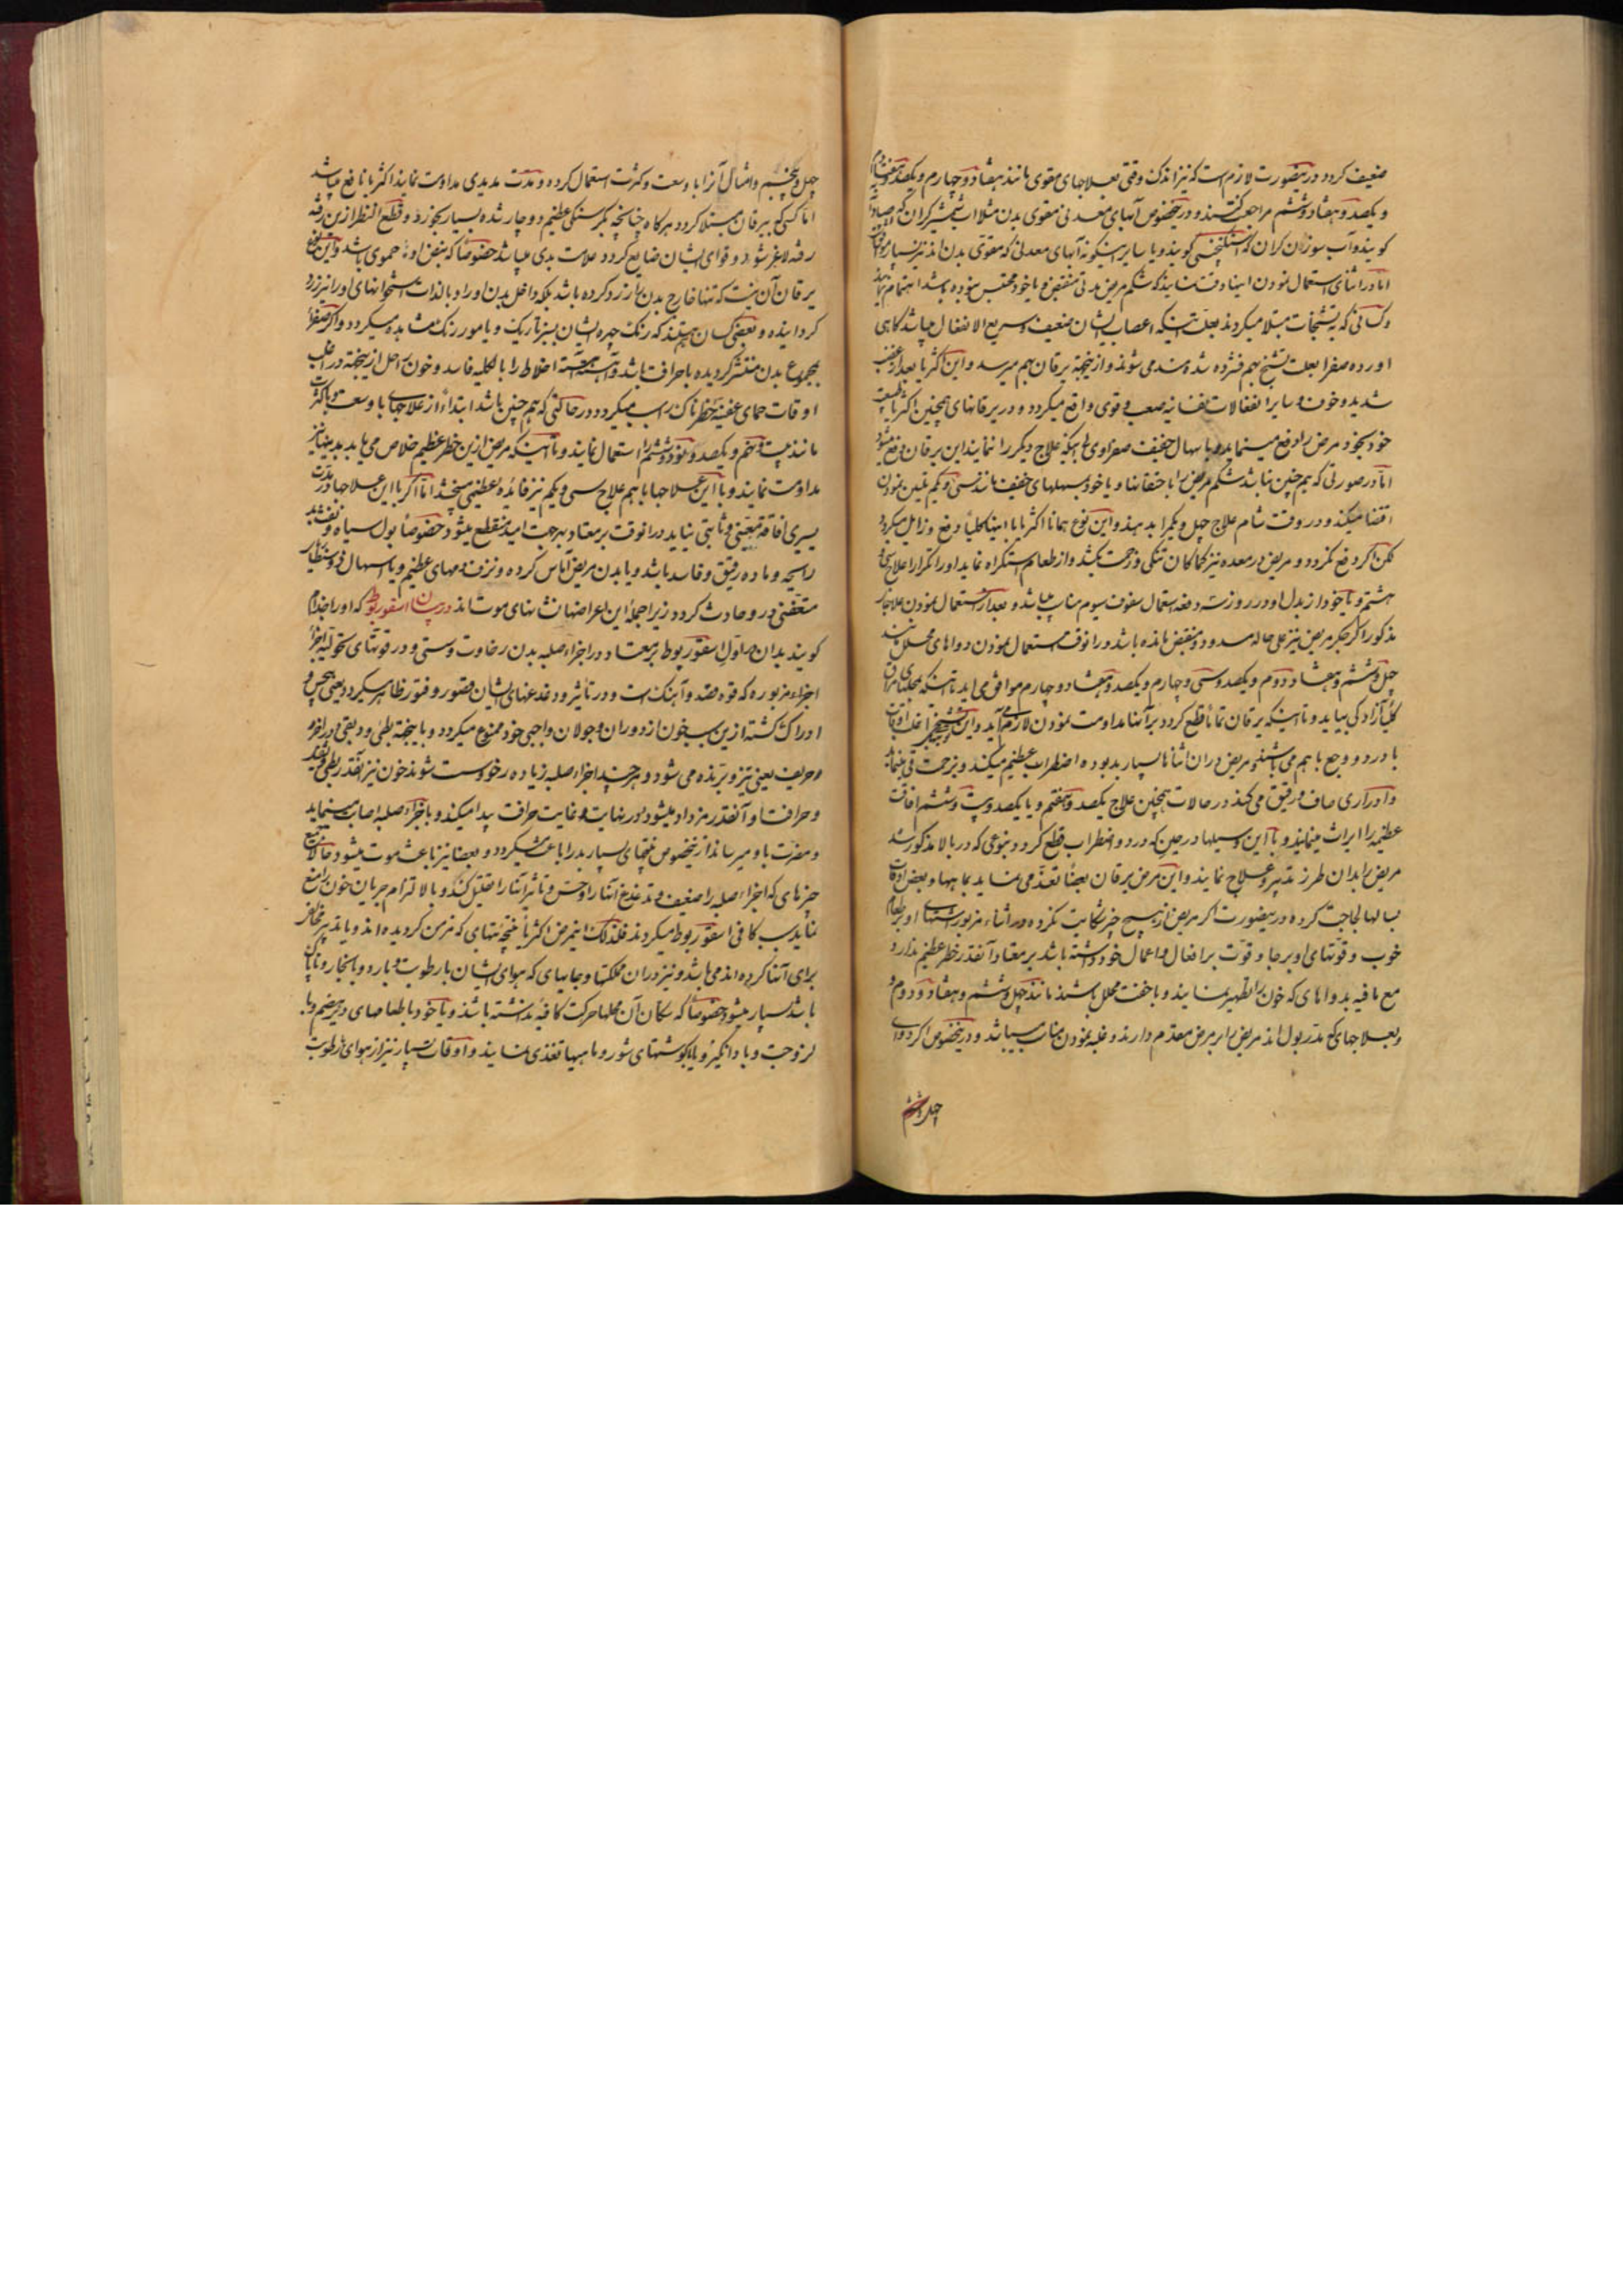 ضعیف کردد درینصورت لازم است که نیز اندک وقتی بعلاجهای مقوی مانند هفتاد و چهارم و یکصد و هفتاد
و یکصد و هفتاد و ششم مراجعت کنند و درینخصوص آبهای معدنی مقوی بدن مثلا اب شمشیرکران که
کویند و آب سوزان کران که کویند و یا سایر اینکونه آبهای معدنی که مقوی بدن اند نیز بسیار
اما در اثنای استعمال نمودن اینها دقت نمایند که شکم مریض مدتی منقبض و یا خود محتبس نبوده باشد اهتمام نمایند
و کسانی که بتشنجات مبتلا میکردند بعلت اینکه اعصاب ایشان ضعیف و سریع الانفعال میباشد کاهی
اورده صفرا بعلت تشنج بهم فشرده شده سد می شوند و از نتیجه یرقان بهم میرسد و این اکثریا بعد از غضب
شدید و خوف و سایر انفعالات نفسانیه صعب و قوی واقع میکردد و در یرقانهای همچنین اکثریا طبیعت
خود بخود مرض را دفع مینماید و یا باسهال خفیف صفراوی بی اینکه علاج دیکر را نمایند این یرقان دفع میشود
اما در صورتی که هم چنین نباشد شکم مریض را با حقنها و یا خود بمسهلهای خفیف مانند سی و یکم تلیین نمودن
اقتضا میکند و در وقت شام علاج چهل و یکم را بدهند و این نوع همانا اکثریا با اینها کلیا دفع و زایل میکردد
لکن اکر دفع نکردد و مریض در معده نیز کماکان تنکی و زحمت بکشد و از طعام استکراه نماید او را تکرارا علاج سی و
هشتم و یا خود از بدل او در روز سه دفعه استعمال سفوف سیوم مناسب میباشد و بعد از استعمال نمودن علاجهای
مذکور اکر جکر مریض نیز علی حاله مسدود و منقبض مانده باشد در انوقت استعمال نمودن دواهای محلل مانند
چهل و ششم و هفتاد و دوم و یکصد و سی و چهارم و یکصد و هفتاد و چهارم موافق می اید تا اینکه
کلیا آزادکی بیاید و تا اینکه یرقان تماما قطع کردد بر آنها مداومت نمودن لازم می آید و این تشنجی اغلب اوقات
با درد و وجع با هم می باشد و مریض در ان اثناها بسیار بد بوده اضطراب عظیم میکند و بزحمت قی مینماید
و ادراری صاف و رقیق می کند در حالات همچنین علاج یکصد و هفتم و یا یکصد و بیست و ششم افاقت
عظیمه را ایراث مینمایند و با این وسیلها در حین که درد و اضطراب قطع کردد بنوعی که در بالا مذکور شد
مریض را بدان طرز تدبیر و علاج نمایند و این مرض یرقان بعضا تعند می نماید بماهها و بعض اوقات
بسالها لجاجت کرده درینصورت اکر مریض از هیچ چیز شکایت نکرده در اثناء مزبور اشتهای او بطعام
خوب و قوتهای او برجا و قوت بر افعال و اعمال خود داشته باشد بر معتاد آنقدر خطر عظیم ندارد
مع ما فیه بدواهای که خون را تطهیر نمایند و با خفت محلل باشند مانند چهل و ششم و هفتاد و دوم و
و بعلاجهای که مدر بول اند مریض را بر مرض مقدم دارند و غلبه نمودن مناسب میباشد و درینخصوص اکر دوای
چهل و ششم
چهل و پنجم و امثال آنرا با وسعت و کثرت استعمال کرده و مدت مدیدی مداومت نمایند اکثریا نافع میباشد
اما کسی که بیرقان مبتلا کردد هرکاه چنانچه بکرسنکی عظیم دوچار شده بسیار بخورد و قطع النظر ازین رفته
رفته لاغر شود و قوای ایشان ضایع کردد علامت بدی میباشد خصوصا که نبض او حموی باشد و این نوع
یرقان آن نیست که تنها خارج بدن را زرد کرده باشد بلکه داخل بدن او را و بالذات استخوانهای او را نیز زرد
کردانیده و بعضی کسان هستند که رنک چهره ایشان بسیز تاریک و یا مور رنک مشاهده میکردد و اکر صفرا
بمجموع بدن منتشر کردیده با حرافت باشد و آهسته آهسته اخلاط را بالکلیه فاسد و خون را حل از نتیجه در اغلب
اوقات حمای عفنیه خطرناک را سبب میکردد در حالتی که هم چنین باشد ابتداء از علاجهای با وسعت و با کثرت
مانند بیست و پنجم و یکصد و نود و ششم را استعمال نمایند و تا اینکه مریض ازین خطر عظیم خلاص می یابد بدینها نیز
مداومت نمایند و با این علاجها با هم علاج سی و یکم نیز فائده عظیمی میبخشد اما اکر با این علاجها در مدت
یسیری افاقه معینی و ثابتی نیاید در انوقت بر معتاد بهر جهت امید منقطع میشود خصوصا بول سیاه و
رایحه و ماده رقیق و فاسد باشد و یا بدن مریض آماس کرده و نزف دمهای عظیم و یا اسهال ذو
متعفنی در و حادث کردد زیرا جمله این اعراضها نشانهای موت اند در بیان اسقوربوط که او را جذام
کویند بدان در اول اسقوربوط بر معتاد در اجزاء صلبه بدن رخاوت و سستی و در قوتهای تحولیه اجزا
اجزاء مزبوره که قوه مقدر و آهنک است و در تاثیر و دغدغهای ایشان قصور و فتور ظاهر میکردد یعنی بی حس و
ادراک کشته ازین سبب خون از دوران و جولان واجبی خود ممنوع میکردد و با نتیجه بطی و دبقی در آخر
و حریف یعنی تیز و برنده می شود و هر چند اجزاء صلبه زیاده رخو و سست شوند خون نیز آنقدر بطی و
و حرافت او آنقدر مزداد میشود در نهایت و غایت حرافت پیدا میکند و باجزاء صلبه اصابت مینماید
و مضرت باو میرساند ازینخصوص نتیجهای بسیار بد را باعث میکردد و بعضا نیز باعث موت میشود حالا جمیع
چیزهای که اجزاء صلبه را ضعیف و تدغدغ آنها را و حس و تاثیر آنها را تقلیل کنند و بالالتزام جریان خون را منع
نمایند سبب کافی اسقوربوط میکردند فلذلک اینمرض اکثریا نتیجه تبهای که مزمن کردیده اند و یا تدبیر مخالف
برای آنها کرده اند می باشد و نیز در ان مملکتها و جایهای که هوای ایشان با رطوبت و بارد و با بخار و ناپاک
باشد بسیار میشود خصوصا که سکان آن محلها حرکت کافیه نداشته باشند و یا خود با طعامهای دیرهضم و با
لزوجت و باد انکیز و یا با کوشتهای شور و ماهیها تغذی نمایند و اوقات بسیار نیز از هوای رطوبت